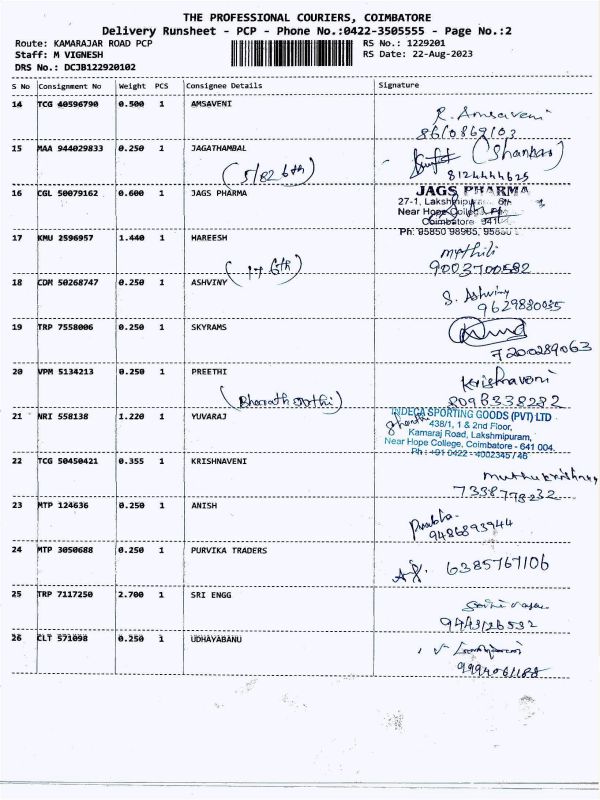 THE PROFESSIONAL COURIERS, COIMBATORE
Delivery Runsheet - PCP - Phone No.:0422-3505555 - Page No.:2
Route: KAMARAJAR ROAD PCP
RS No.: 1229201
Staff: M VIGNESH
RS Date: 22-Aug-2023
DRS No.: DCJB122920102
S No Consignment No Weight PCS Consignee Details Signature
14 TCG 40596790 0.500 1 AMSAVENI
R. Amsaveni
8610869103
15 MAA 944029833 0.250 1 JAGATHAMBAL
(Shankar)
(5/82 6th)
8124444625
16 CGL 50079162 0.600 1 JAGS PHARMA
JAGS PHARMA
27-1, Lakshmipuram 6th
Near Hope College
Coimbatore
Ph: 95850 98965
17 KMU 2596957 1.440 1 HAREESH
Mythili
(17 6th)
9003700582
18 CDM 50268747 0.250 1 ASHVINY
S. Ashviny
9629880035
19 TRP 7558006 0.250 1 SKYRAMS
7200289063
20 VPM 5134213 0.250 1 PREETHI
Krishnaveni
8098338282
21 NRI 558138 1.220 1 YUVARAJ
INDECA SPORTING GOODS (PVT) LTD
438/1, 1 & 2nd Floor,
Kamaraj Road, Lakshmipuram,
Near Hope College, Coimbatore - 641 004.
Ph : +91 0422 - 4002345 / 46
22 TCG 50450421 0.355 1 KRISHNAVENI
Muthukrishnan
7338778232
23 MTP 124636 0.250 1 ANISH
Prabha
9486893944
24 MTP 3050688 0.250 1 PURVIKA TRADERS
6385767106
25 TRP 7117250 2.700 1 SRI ENGG
9443126532
26 CLT 571098 0.250 1 UDHAYABANU
9994061188